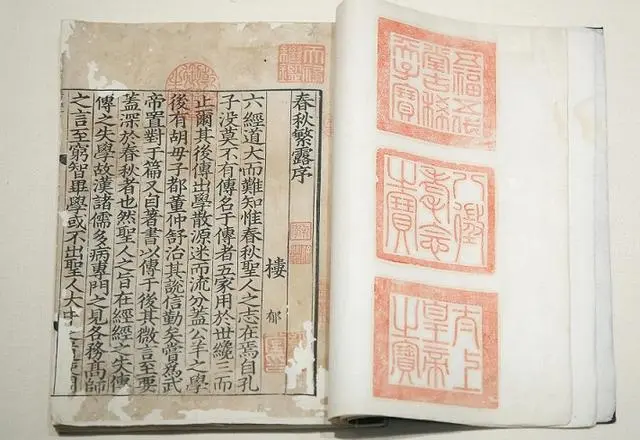 五福五代
堂古稀
天子寶
八徵
耄念
之寶
太上
皇帝
之寶
天祿
繼鑑
春秋繁露序
樓郁
六經道大而難知惟春秋聖人之志在焉自孔
子没莫不有傳名于傳者五家用於世纔三而
止爾其後傳出學散源迷而流分蓋公羊之學
後有胡母子都董仲舒治其說信勤矣嘗爲武
帝置對于篇又自著書以傳于後其微言至要
蓋深於春秋者也然聖人之旨在經經之失傳
傳之失學故漢諸儒多病專門之見各務高師
之言至窮智畢學或不出聖人大中